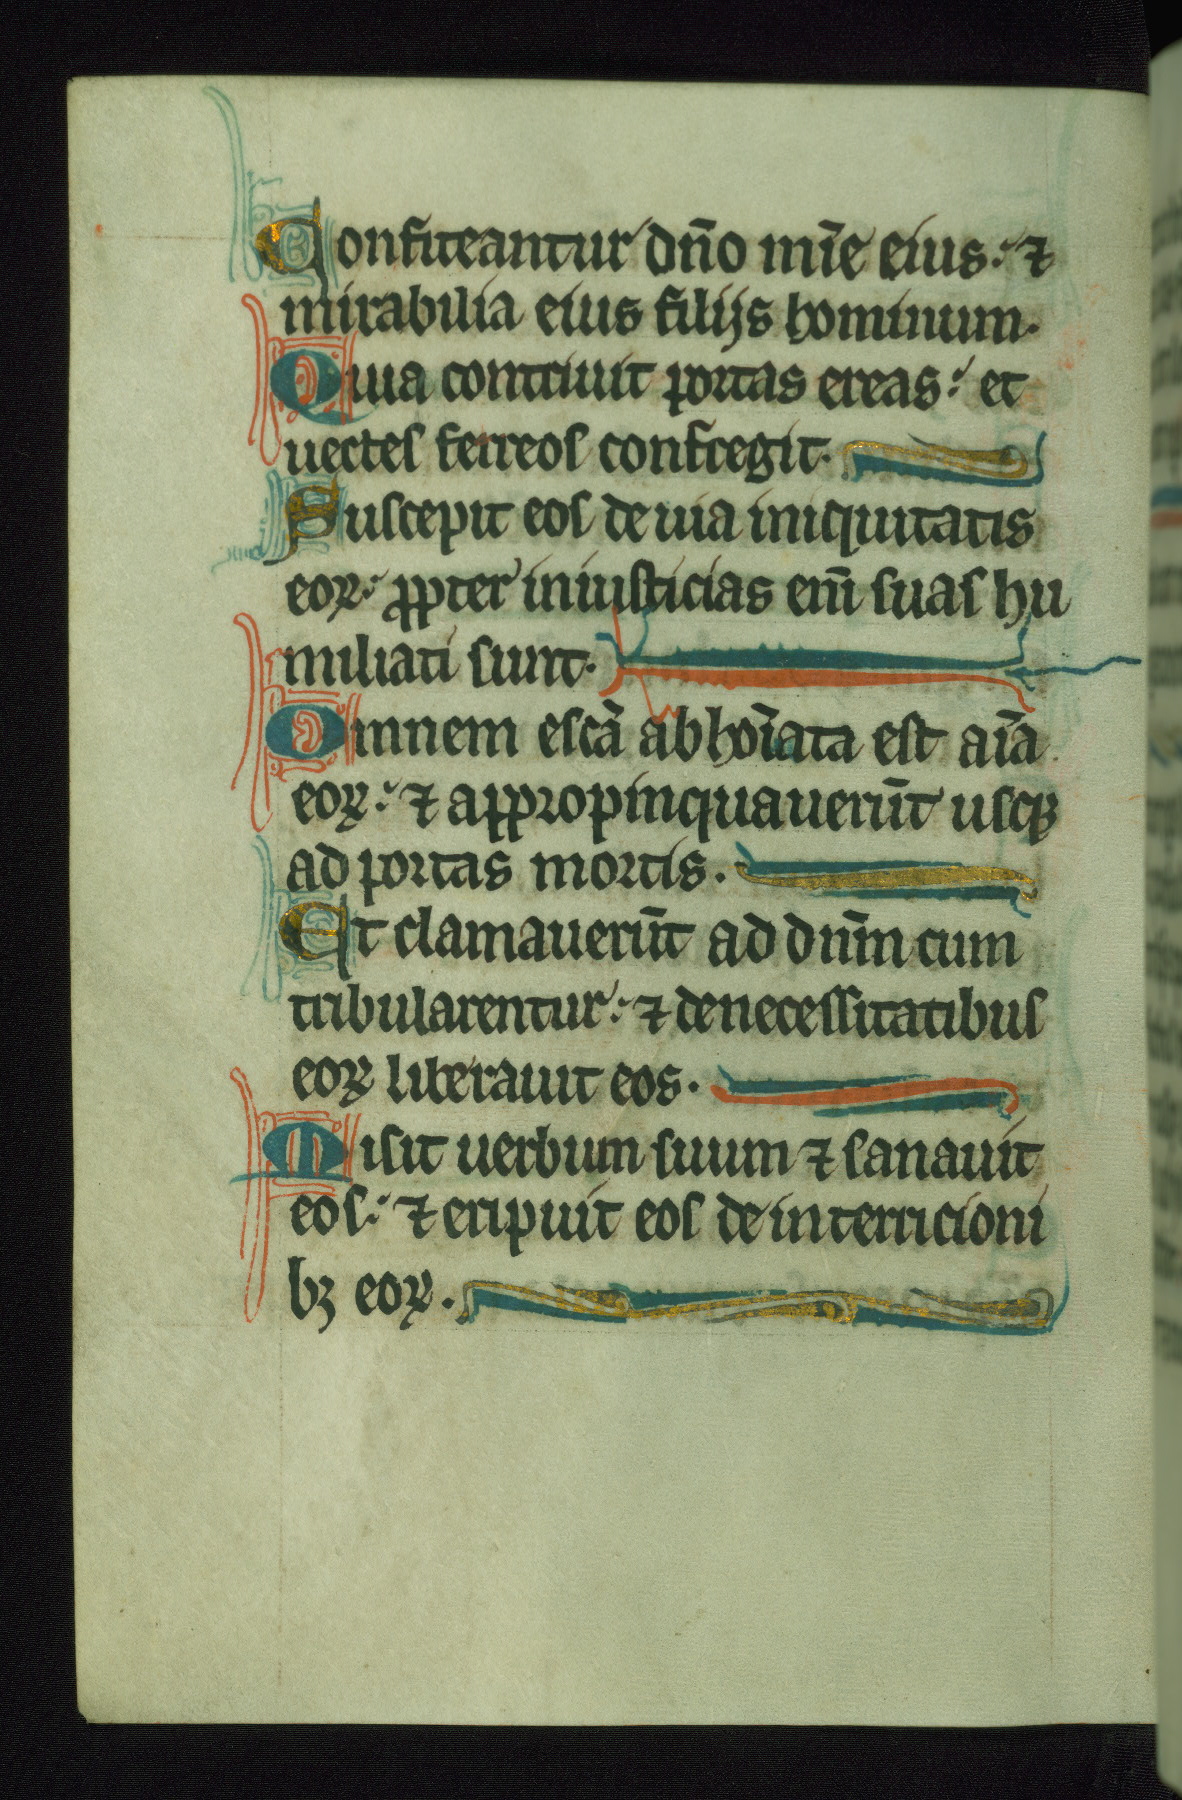 Confiteantur dño mĩe eius: ⁊
mirabilia eius filijs hominum.
Quia contriuit portas ereas: et
uectes ferreos confregit.
Suscepit eos de uia iniquitatis
eoꝝ: ꝓpter iniusticias eni̅ suas hu
miliati sunt.
Omnem escã abhoĩata est aĩa
eoꝝ: ⁊ appropinquauerũt usqꝫ
ad portas mortis.
Et clamauerũt ad dnm̃ cum
tribularentur: ⁊ de necessitatibus
eoꝝ liberauit eos.
Misit uerbum suum ⁊ sanauit
eos: ⁊ eripuit eos de interricioni
bꝫ eoꝝ.